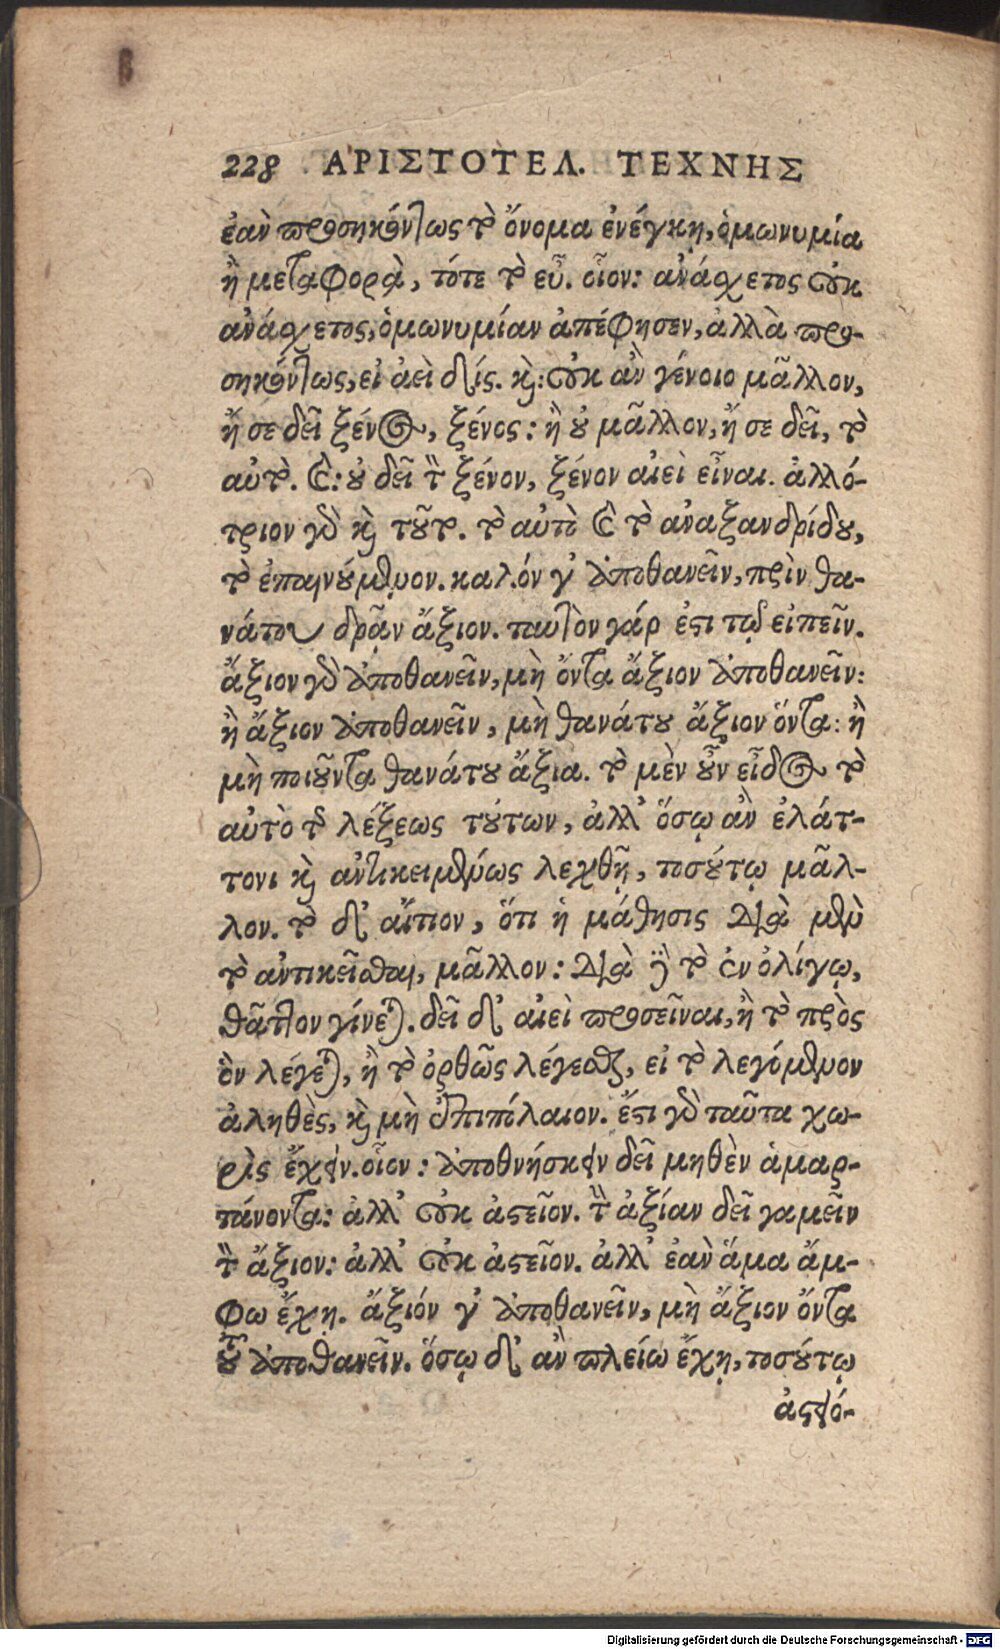 228 ΑΡΙΣΤΟΤΕΛ. ΤΕΧΝΗΣ
ἐὰν προσηκόντως τὸ ὄνομα ἐνέγκῃ, ὁμωνυμία
ἢ μεταφορὰ, τότε τὸ εὖ. οἷον: ἀνάσχετος οὐκ
ἀνάσχετος, ὁμωνυμίαν ἀπέφησεν, ἀλλὰ προ-
σηκόντως, εἰ ἀεὶ δίς. καὶ: οὐκ ἂν γένοιο μᾶλλον,
ἤ σε δεῖ ξένος, ξένος: ἢ οὐ μᾶλλον, ἤ σε δεῖ, τὸ
αὐτὸ. καὶ: οὐ δεῖ τὸν ξένον, ξένον αἰεὶ εἶναι. ἀλλό-
τριον γὰρ καὶ τοῦτο. τὸ αὐτὸ καὶ τὸ ἀναξανδρίδου,
τὸ ἐπαινούμενον. καλόν γ' ἀποθανεῖν, πρὶν θα-
νάτου δρᾷν ἄξιον. ταυτὸν γάρ ἐστι τῷ εἰπεῖν.
ἄξιον γὰρ ἀποθανεῖν, μὴ ὄντα ἄξιον ἀποθανεῖν:
ἢ ἄξιον ἀποθανεῖν, μὴ θανάτου ἄξιον ὄντα: ἢ
μὴ ποιοῦντα θανάτου ἄξια. τὸ μὲν οὖν εἶδος τὸ
αὐτὸ τῆς λέξεως τούτων, ἀλλ' ὅσῳ ἂν ἐλάτ-
τονι καὶ ἀντικειμένως λεχθῇ, τοσούτῳ μᾶλ-
λον. τὸ δ' αἴτιον, ὅτι ἡ μάθησις διὰ μὲν
τὸ ἀντικεῖσθαι, μᾶλλον: διὰ δὲ τὸ ἐν ὀλίγῳ,
θᾶττον γίνεται. δεῖ δ' αἰεὶ προσεῖναι, ἢ τὸ πρὸς
ὃν λέγεται, ἢ τὸ ὀρθῶς λέγεσθαι, εἰ τὸ λεγόμενον
ἀληθὲς, καὶ μὴ ἐπιπόλαιον. ἔστι γὰρ ταῦτα χω-
ρὶς ἔχειν. οἷον: ἀποθνήσκειν δεῖ μηθὲν ἁμαρ-
τάνοντα: ἀλλ' οὐκ ἀστεῖον. τὴν ἀξίαν δεῖ γαμεῖν
τὸν ἄξιον: ἀλλ' οὐκ ἀστεῖον. ἀλλ' ἐὰν ἅμα ἄμ-
φω ἔχῃ. ἄξιόν γ' ἀποθανεῖν, μὴ ἄξιον ὄντα
τοῦ ἀποθανεῖν. ὅσῳ δ' ἂν πλείω ἔχῃ, τοσούτῳ
ἀστειό-
Digitalisierung gefördert durch die Deutsche Forschungsgemeinschaft - DFG